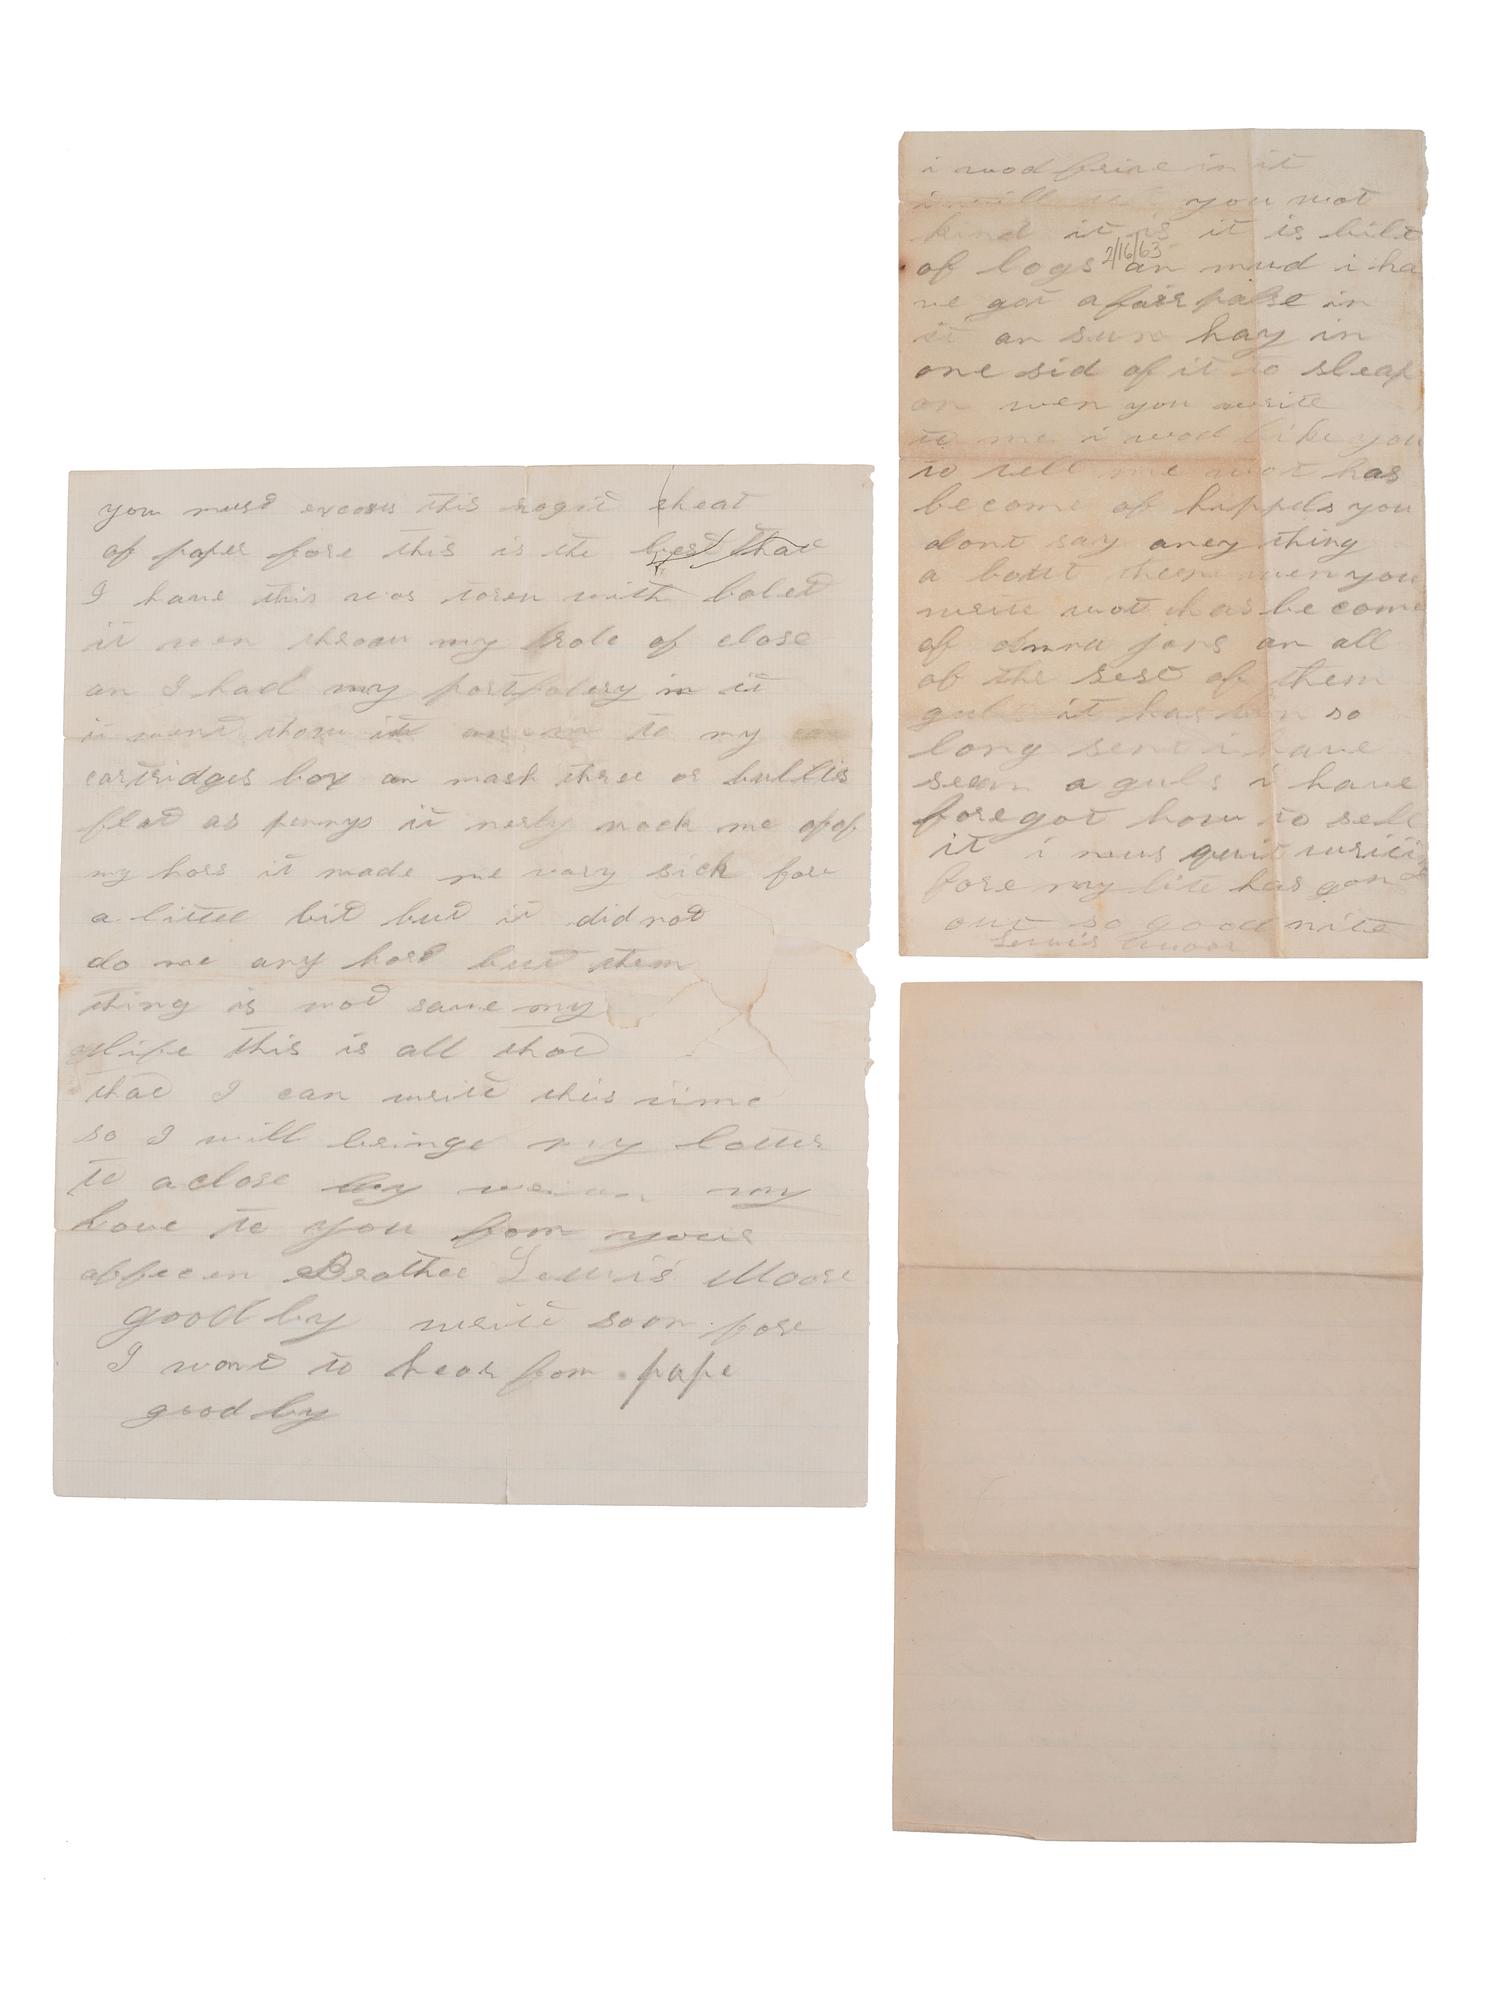 you must excous this rogit cheat
of paper fore this is the best that
I have this was toren with boled
it wen throw my role of close
an I had my portfolery in it
it went throw it an in to my
cartridges box an mash three or bullits
flat as pennys it nerly nock me opof
my hors it made me vary sick fore
a littel bit but it did not
do me any hort but them
thing is wot save my
life this is all that
that I can write this time
so I will bringe my latter
to a close by my
love to you fom your
affecen Brother Lewis Moore
good by write soon fore
I wont to hear fom pape
good by
i wod in it
i will you wot
kind it is it is bilt
2/16/63
of logs an mud i ha
ve got a fair palse in
it an sum hay in
one sid of it to sleap
on wen you write
to me i wod like you
to tell me wot has
become of you
dont say aney thing
a bout them wen you
write wot has be come
of jons an all
of the rest of them
guls it has bin so
long senc i have
seen a guls i have
foregot how to sell
it i mus quit writin
fore my lite has gon
out so good nite
Lewis Moor